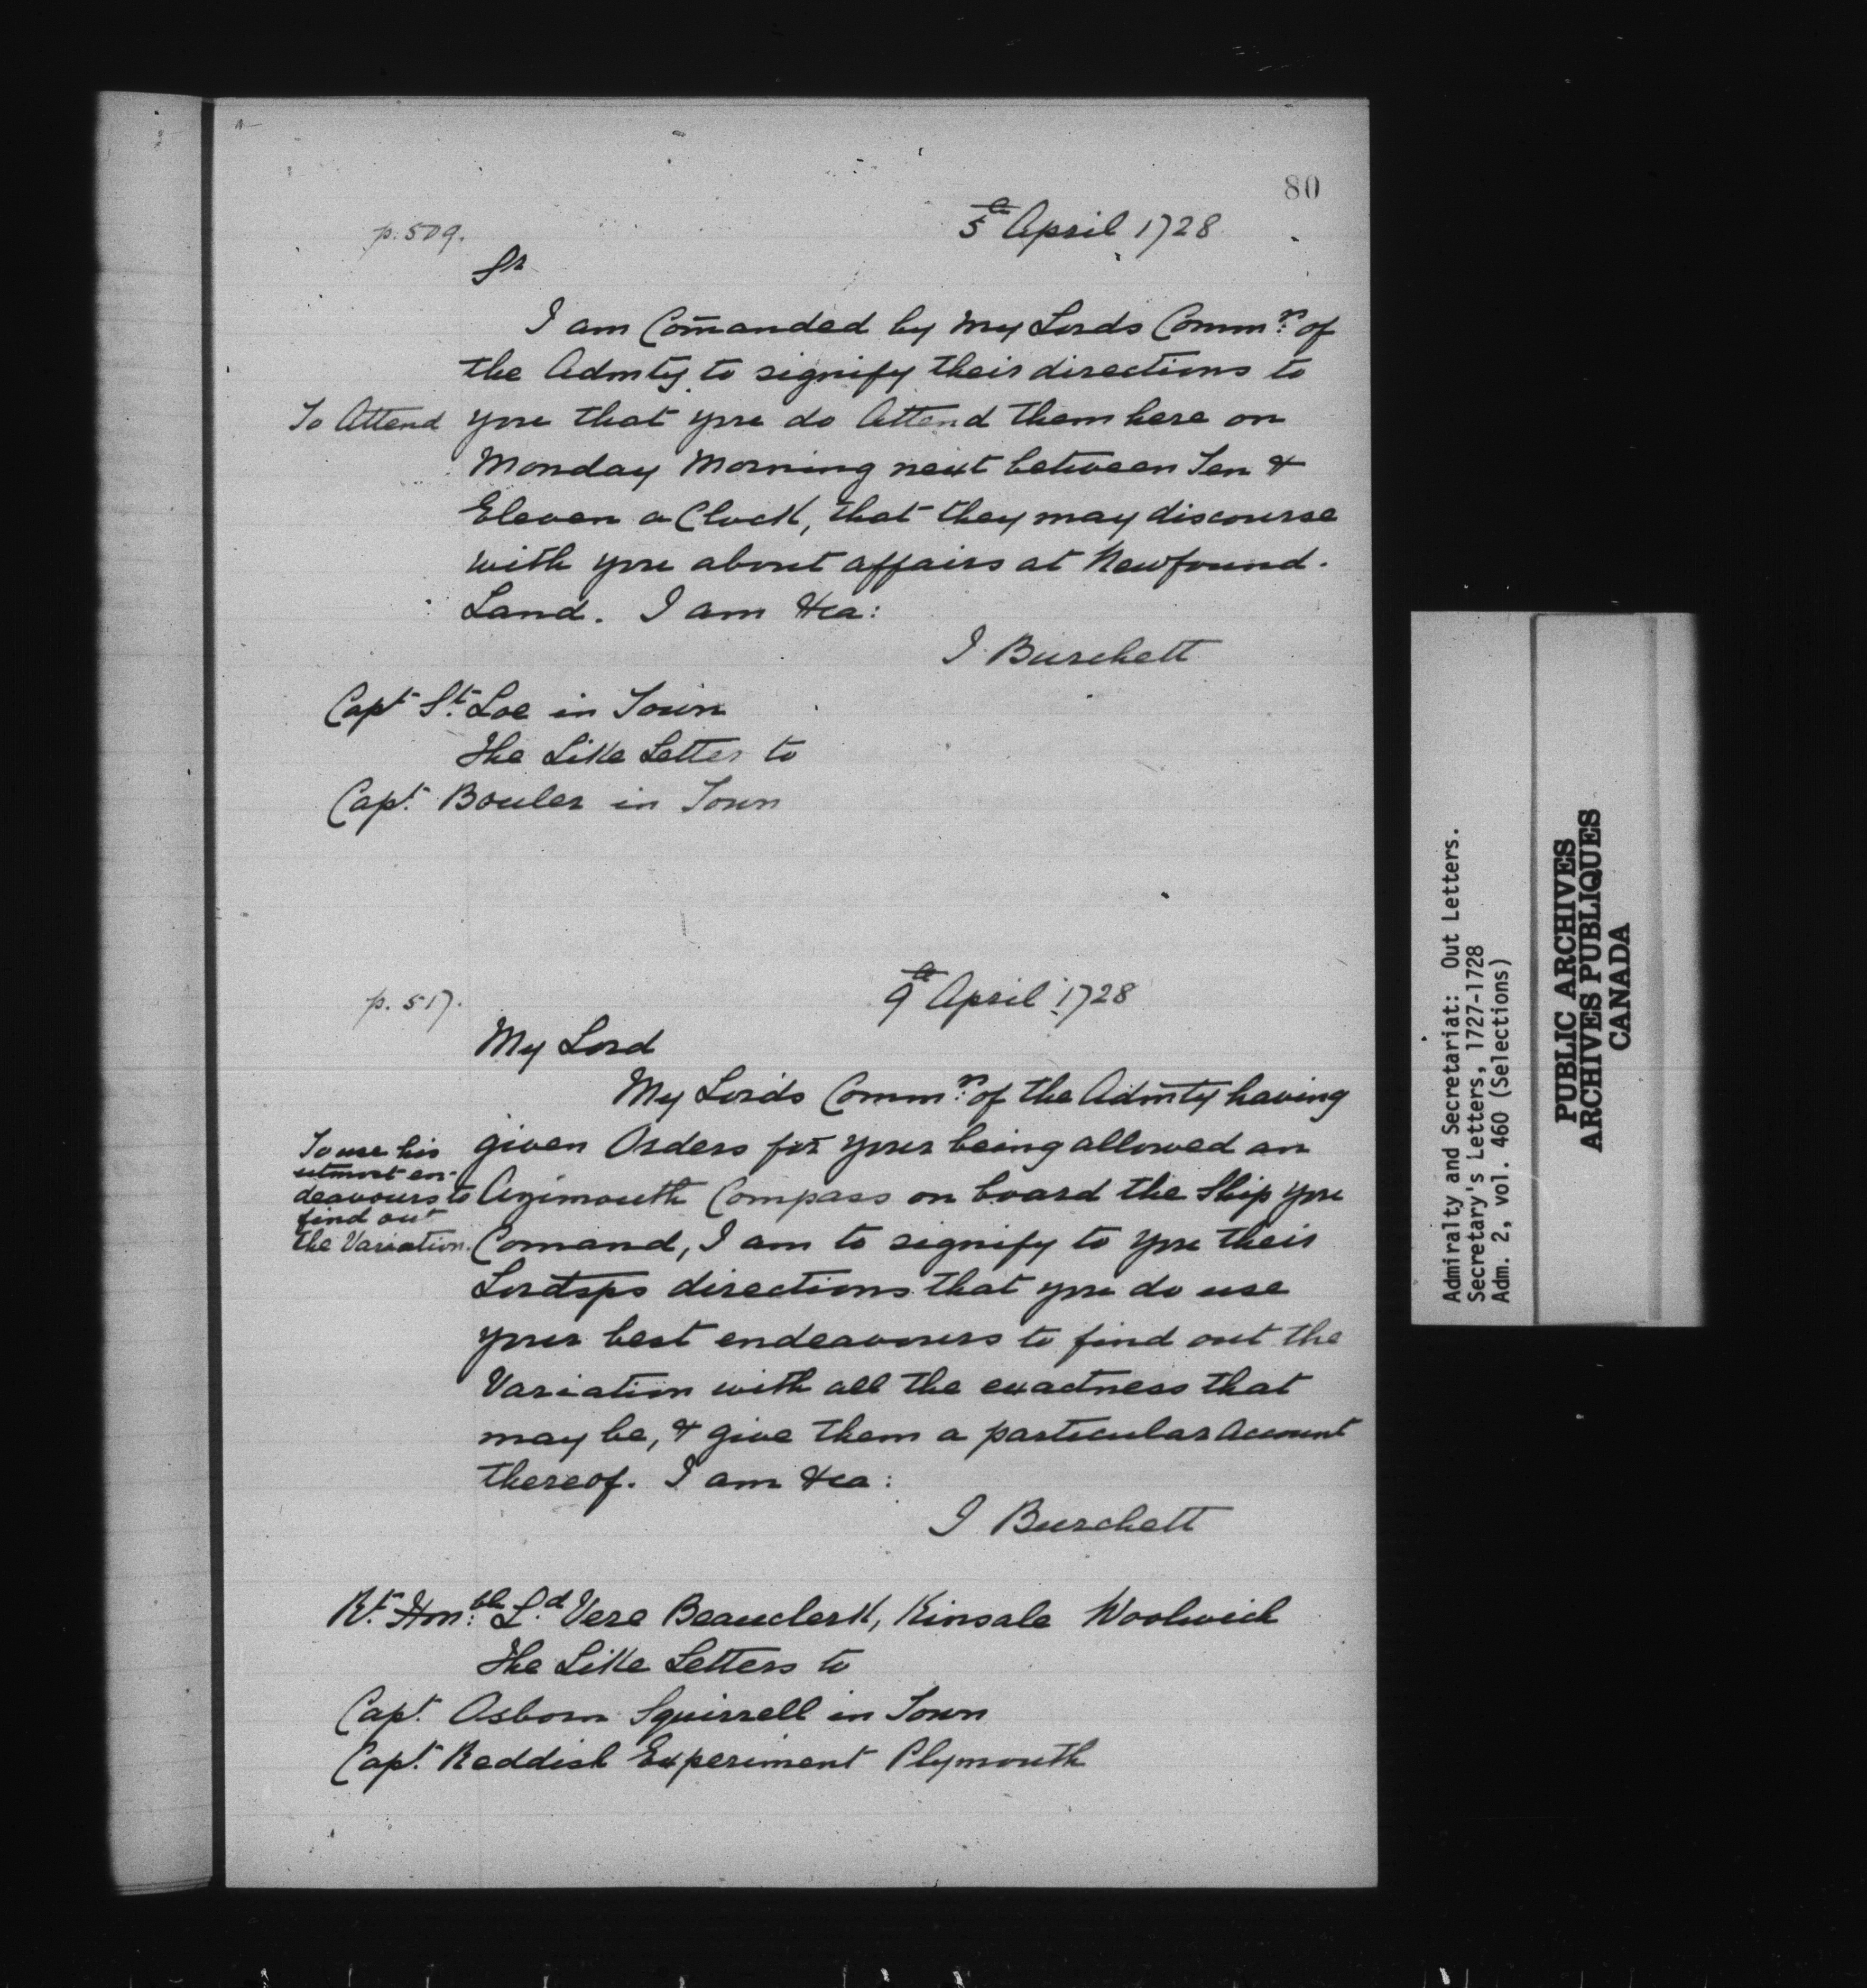 80
p. 509.
5th April 1728
Sr
I am Com̄anded by My Lords Commrs. of
the Admty to signify their directions to
To Attend
you that you do Attend them here on
Monday Morning next between Ten &
Eleven a Clock, that they may discourse
with you about affairs at Newfound-
Land. I am &ca:
J. Burchett
Capt St. Loe in Town
The Like Letter to
Capt. Bouler in Town
p. 517.
9th April 1728
My Lord
My Lords Commrs. of the Admty having
given Orders for your being allowed an
To use his
utmost en-
deavours to
find out
the Variation.
Azimouth Compass on board the Ship you
Comand, I am to signify to you their
Lordsps directions that you do use
your best endeavours to find out the
Variation with all the exactness that
may be, & give them a particular Account
thereof. I am &ca:
J Burchett
Rt. Honble. Ld. Vere Beauclerk, Kinsale Woolwich
The Like Letters to
Capt. Osborn Squirrell in Town
Capt. Reddish Experiment Plymouth
Admiralty and Secretariat: Out Letters.
Secretary's Letters, 1727-1728
Adm. 2, vol. 460 (Selections)
PUBLIC ARCHIVES
ARCHIVES PUBLIQUES
CANADA